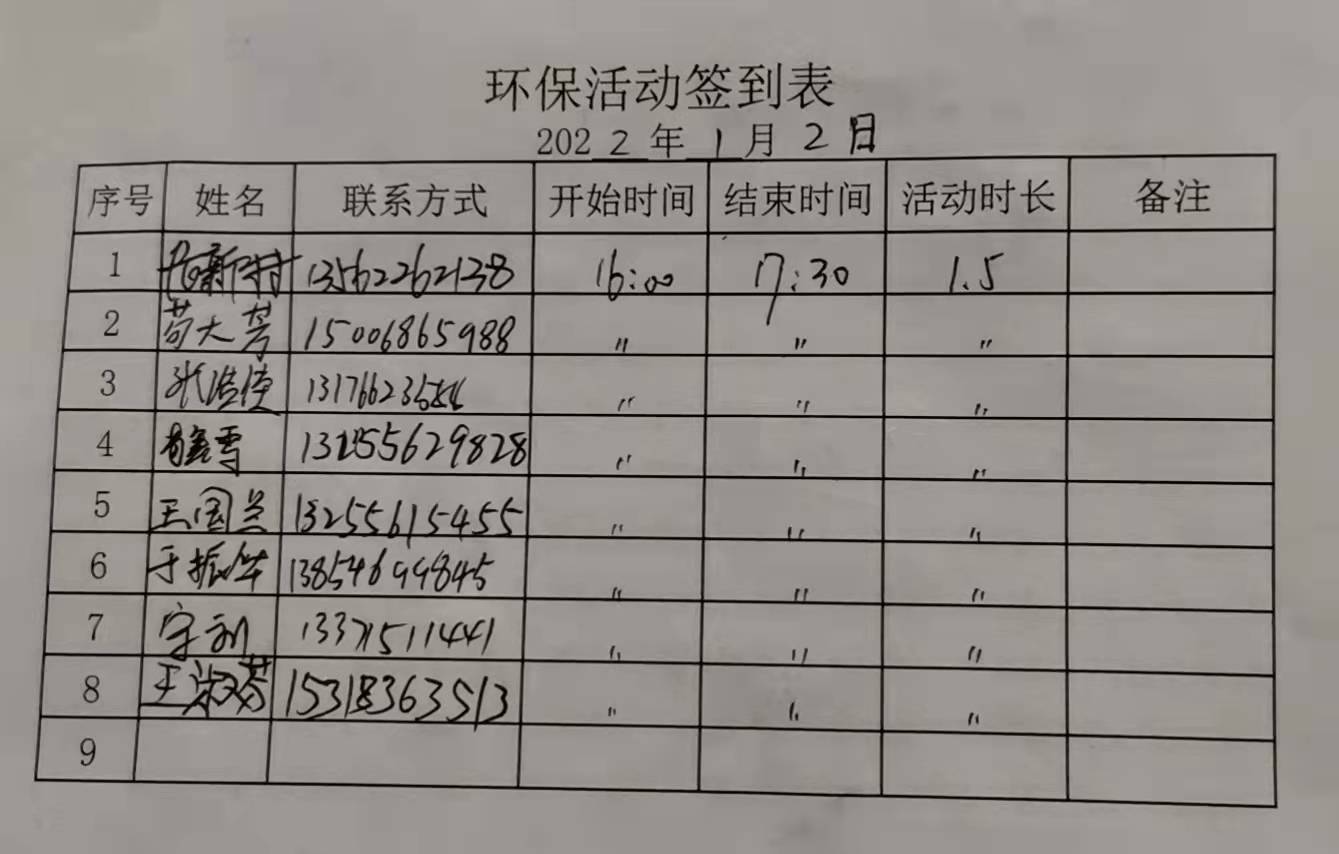 环保活动签到表
2022年1月2日
序号 姓名 联系方式 开始时间 结束时间 活动时长 备注
1 13562262138 16:00 17:30 1.5
2 苟大芳 15006865988 〃 〃 〃
3 张浩 〃 〃 〃
4 雪 〃 〃 〃
5 王国兰 13255615455 〃 〃 〃
6 于振华 13854699845 〃 〃 〃
7 宁利 13371511441 〃 〃 〃
8 王淑芬 15318363513 〃 〃 〃
9